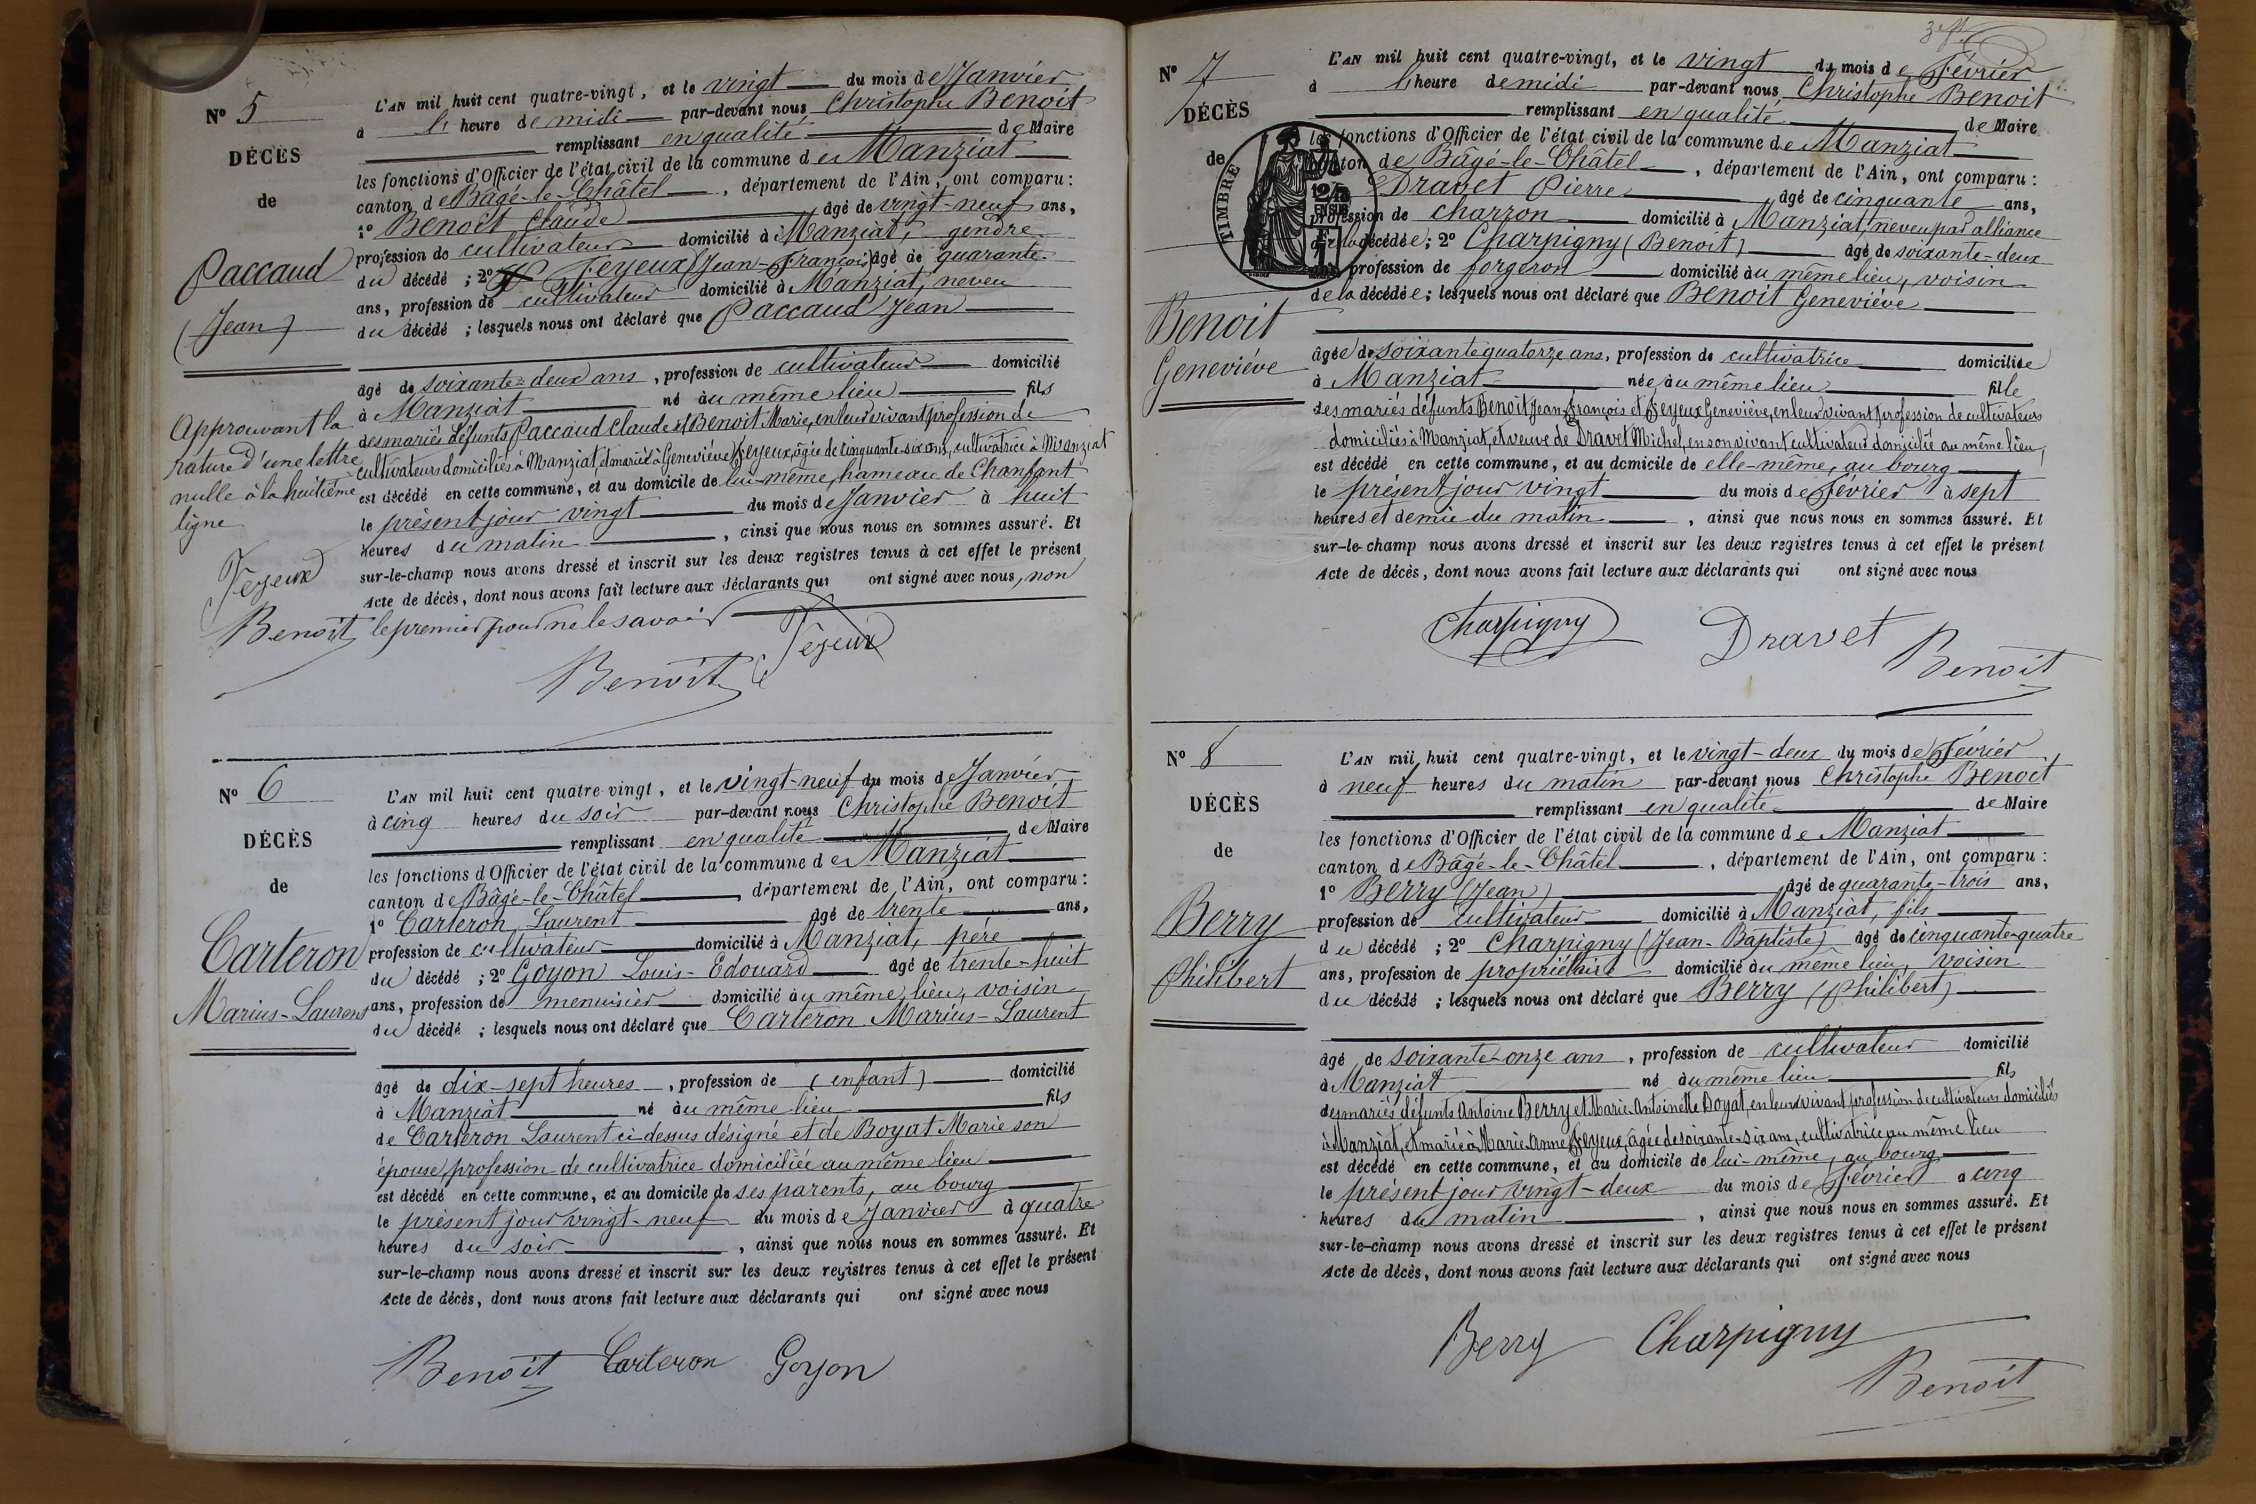 N° 5
DÉCÈS
de
Paccaud
(Jean)
Approuvant la
rature d'une lettre
nulle à la huitième
ligne
Feyeux
Benoit
L'AN mil huit cent quatre-vingt, et le vingt du mois de Janvier
à l' heure de midi par-devant nous Christophe Benoit
remplissant en qualité de Maire
les fonctions d'Officier de l'état civil de la commune de Manziat
canton de Bâgé-le-Châtel, département de l'Ain, ont comparu :
1° Benoit Claude âgé de vingt-neuf ans,
profession de cultivateur domicilié à Manziat, gendre
du décédé ; 2° Feyeux Jean-François âgé de quarante
ans, profession de cultivateur domicilié à Manziat, neveu
du décédé ; lesquels nous ont déclaré que Paccaud Jean
âgé de soixante-deux ans, profession de cultivateur domicilié
à Manziat né au même lieu fils
des mariés défunts Paccaud Claude et Benoit Marie, en leur vivant profession de
cultivateurs domiciliés à Manziat, et marié à Geneviève Feyeux, âgée de cinquante-six ans, cultivatrice à Manziat
est décédé en cette commune, et au domicile de lui-même, hameau de Chanfant
le présent jour vingt du mois de Janvier à huit
heures du matin, ainsi que nous nous en sommes assuré. Et
sur-le-champ nous avons dressé et inscrit sur les deux registres tenus à cet effet le présent
Acte de décès, dont nous avons fait lecture aux déclarants qui ont signé avec nous, non
le premier pour ne le savoir
Benoit Feyeux
N° 6
DÉCÈS
de
Carteron
Marius-Laurent
L'AN mil huit cent quatre-vingt, et le vingt-neuf du mois de Janvier
à cinq heures du soir par-devant nous Christophe Benoit
remplissant en qualité de Maire
les fonctions d'Officier de l'état civil de la commune de Manziat
canton de Bâgé-le-Châtel, département de l'Ain, ont comparu :
1° Carteron Laurent âgé de trente ans,
profession de cultivateur domicilié à Manziat, père
du décédé ; 2° Goyon Louis-Edouard âgé de trente-huit
ans, profession de menuisier domicilié au même lieu, voisin
du décédé ; lesquels nous ont déclaré que Carteron Marius-Laurent
âgé de dix-sept heures, profession de (enfant) domicilié
à Manziat né au même lieu fils
de Carteron Laurent ci-dessus désigné et de Boyat Marie son
épouse, profession de cultivatrice domiciliée au même lieu
est décédé en cette commune, et au domicile de ses parents, au bourg
le présent jour vingt-neuf du mois de Janvier à quatre
heures du soir, ainsi que nous nous en sommes assuré. Et
sur-le-champ nous avons dressé et inscrit sur les deux registres tenus à cet effet le présent
Acte de décès, dont nous avons fait lecture aux déclarants qui ont signé avec nous
Benoit Carteron Goyon
N° 7
DÉCÈS
de
TIMBRE
Benoit
Geneviève
L'AN mil huit cent quatre-vingt, et le vingt du mois de Février
à l' heure de midi par-devant nous Christophe Benoit
remplissant en qualité de Maire
les fonctions d'Officier de l'état civil de la commune de Manziat
canton de Bâgé-le-Châtel, département de l'Ain, ont comparu :
Dravet Pierre âgé de cinquante ans,
profession de charron domicilié à Manziat, neveu par alliance
de la décédée ; 2° Charpigny (Benoit) âgé de soixante-deux
ans, profession de forgeron domicilié au même lieu, voisin
de la décédée ; lesquels nous ont déclaré que Benoit Geneviève
âgée de soixante quatorze ans, profession de cultivatrice domiciliée
à Manziat née au même lieu fille
des mariés défunts Benoit Jean François et Feyeux Geneviève, en leur vivant profession de cultivateurs
domiciliés à Manziat, et veuve de Dravet Michel, en son vivant cultivateur domicilié au même lieu,
est décédé en cette commune, et au domicile de elle-même, au bourg
le présent jour vingt du mois de Février à sept
heures et demie du matin, ainsi que nous nous en sommes assuré. Et
sur-le-champ nous avons dressé et inscrit sur les deux registres tenus à cet effet le présent
Acte de décès, dont nous avons fait lecture aux déclarants qui ont signé avec nous
Charpigny Dravet Benoit
N° 8
DÉCÈS
de
Berry
Philibert
L'AN mil huit cent quatre-vingt, et le vingt-deux du mois de Février
à neuf heures du matin par-devant nous Christophe Benoit
remplissant en qualité de Maire
les fonctions d'Officier de l'état civil de la commune de Manziat
canton de Bâgé-le-Châtel, département de l'Ain, ont comparu :
1° Berry (Jean) âgé de quarante-trois ans,
profession de cultivateur domicilié à Manziat, fils
du décédé ; 2° Charpigny (Jean-Baptiste) âgé de cinquante-quatre
ans, profession de propriétaire domicilié au même lieu, voisin
du décédé ; lesquels nous ont déclaré que Berry (Philibert)
âgé de soixante-onze ans, profession de cultivateur domicilié
à Manziat né au même lieu fils
des mariés défunts Antoine Berry et Marie-Antoinette Boyat, en leur vivant profession de cultivateurs domiciliés
à Manziat, et marié à Marie Anne Feyeux, âgée de soixante-six ans, cultivatrice au même lieu
est décédé en cette commune, et au domicile de lui-même, au bourg
le présent jour vingt-deux du mois de Février à cinq
heures du matin, ainsi que nous nous en sommes assuré. Et
sur-le-champ nous avons dressé et inscrit sur les deux registres tenus à cet effet le présent
Acte de décès, dont nous avons fait lecture aux déclarants qui ont signé avec nous
Berry Charpigny
Benoit